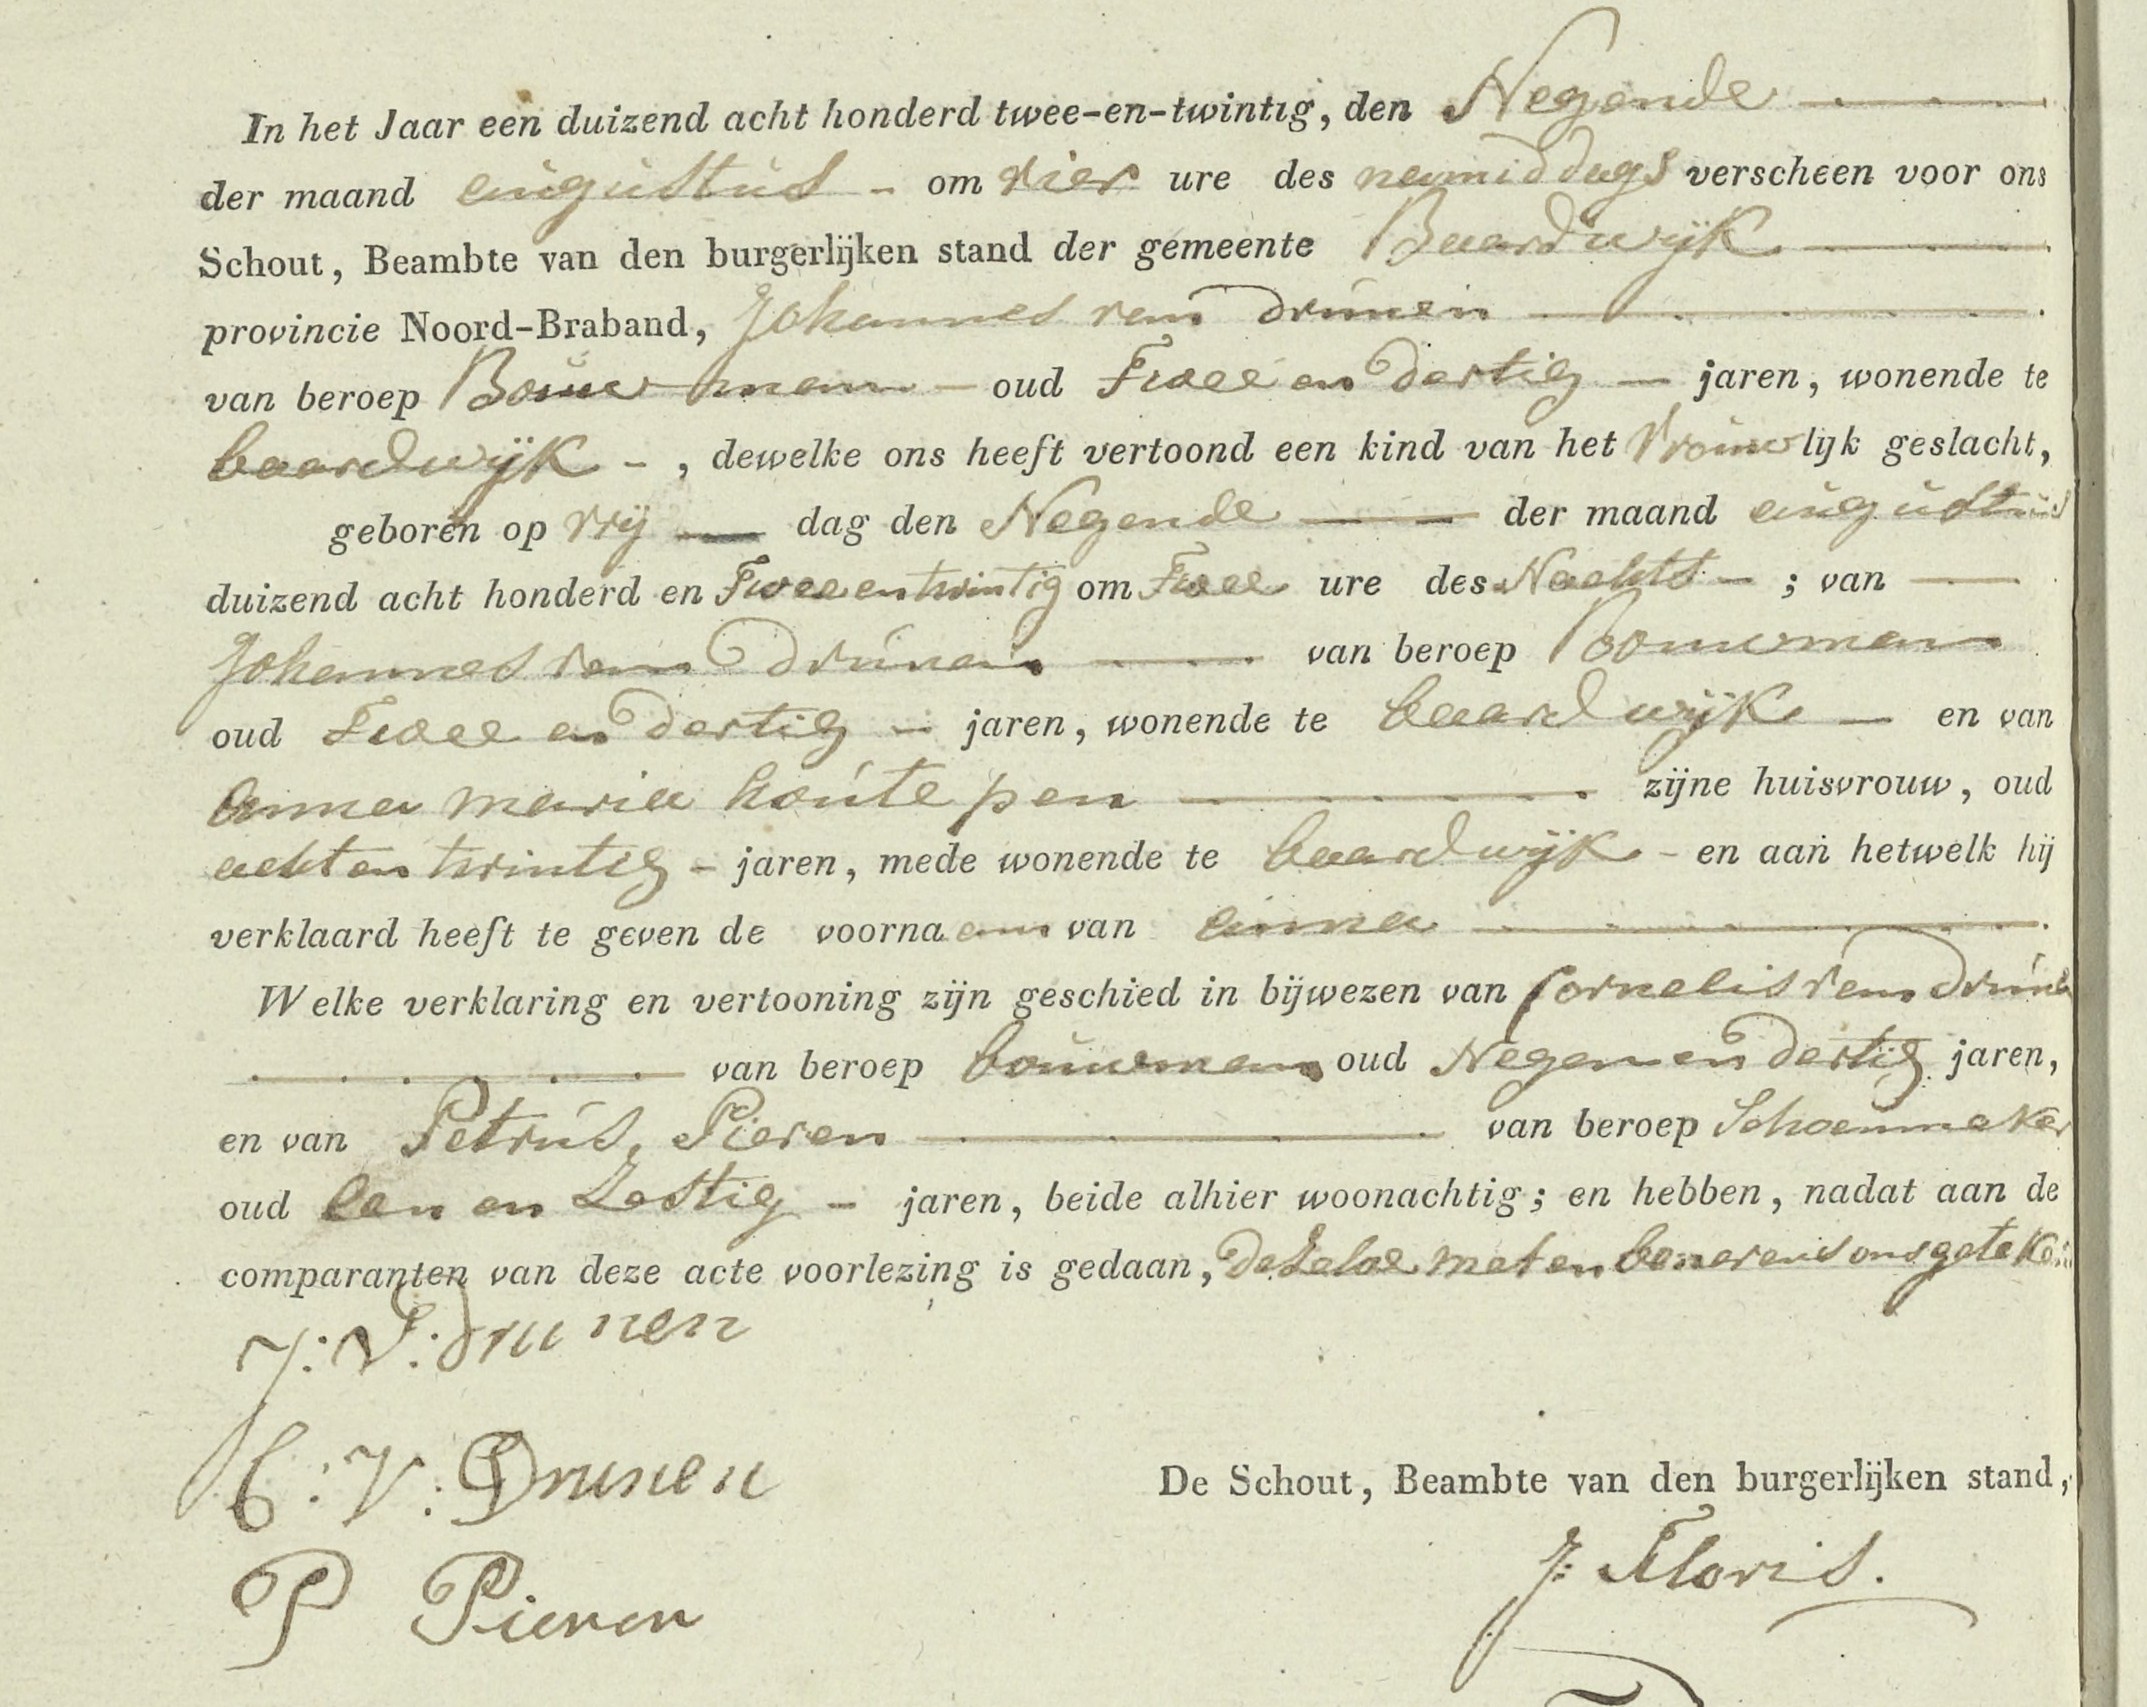 In het Jaar een duizend acht honderd twee-en-twintig, den Negende
der maand augustus - om vier ure des namiddags verscheen voor ons
Schout, Beambte van den burgerlijken stand der gemeente Baardwijk
provincie Noord-Braband, Johannes van Drunen
van beroep Bouwman - oud Twee en dertig - jaren, wonende te
baardwijk - , dewelke ons heeft vertoond een kind van het vrouwlijk geslacht,
geboren op vrij dag den Negende der maand augustus
duizend acht honderd en Twee en twintig om Twee ure des Nachts - ; van
Johannes van Drunen van beroep Bouwman
oud Twee en dertig - jaren, wonende te baardwijk - en van
anna maria houtepen zijne huisvrouw, oud
acht en twintig - jaren, mede wonende te baardwijk - en aan hetwelk hij
verklaard heeft te geven de voornaam van anna
Welke verklaring en vertooning zijn geschied in bijwezen van Cornelis van Drunen
van beroep bouwman oud Negen en dertig jaren,
en van Petrus, Pieren van beroep Schoenmaker
oud Een en Zestig - jaren, beide alhier woonachtig; en hebben, nadat aan de
comparanten van deze acte voorlezing is gedaan, dezelve met en benevens ons getekent
J: V: Drunen
C: V: Drunen
De Schout, Beambte van den burgerlijken stand,
J: Floris.
P Pieren